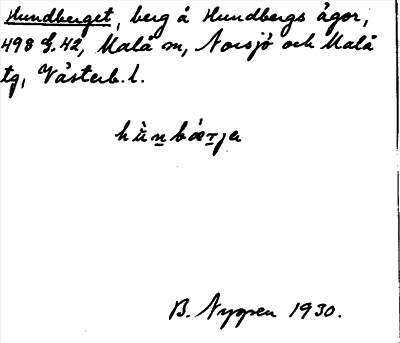 Hundberget, berg å Hundbergs ägor,
498 G.42, Malå m, Norsjö och Malå
tg, Västerb. l.
hùnbærjer
B. Nyppen 1930.